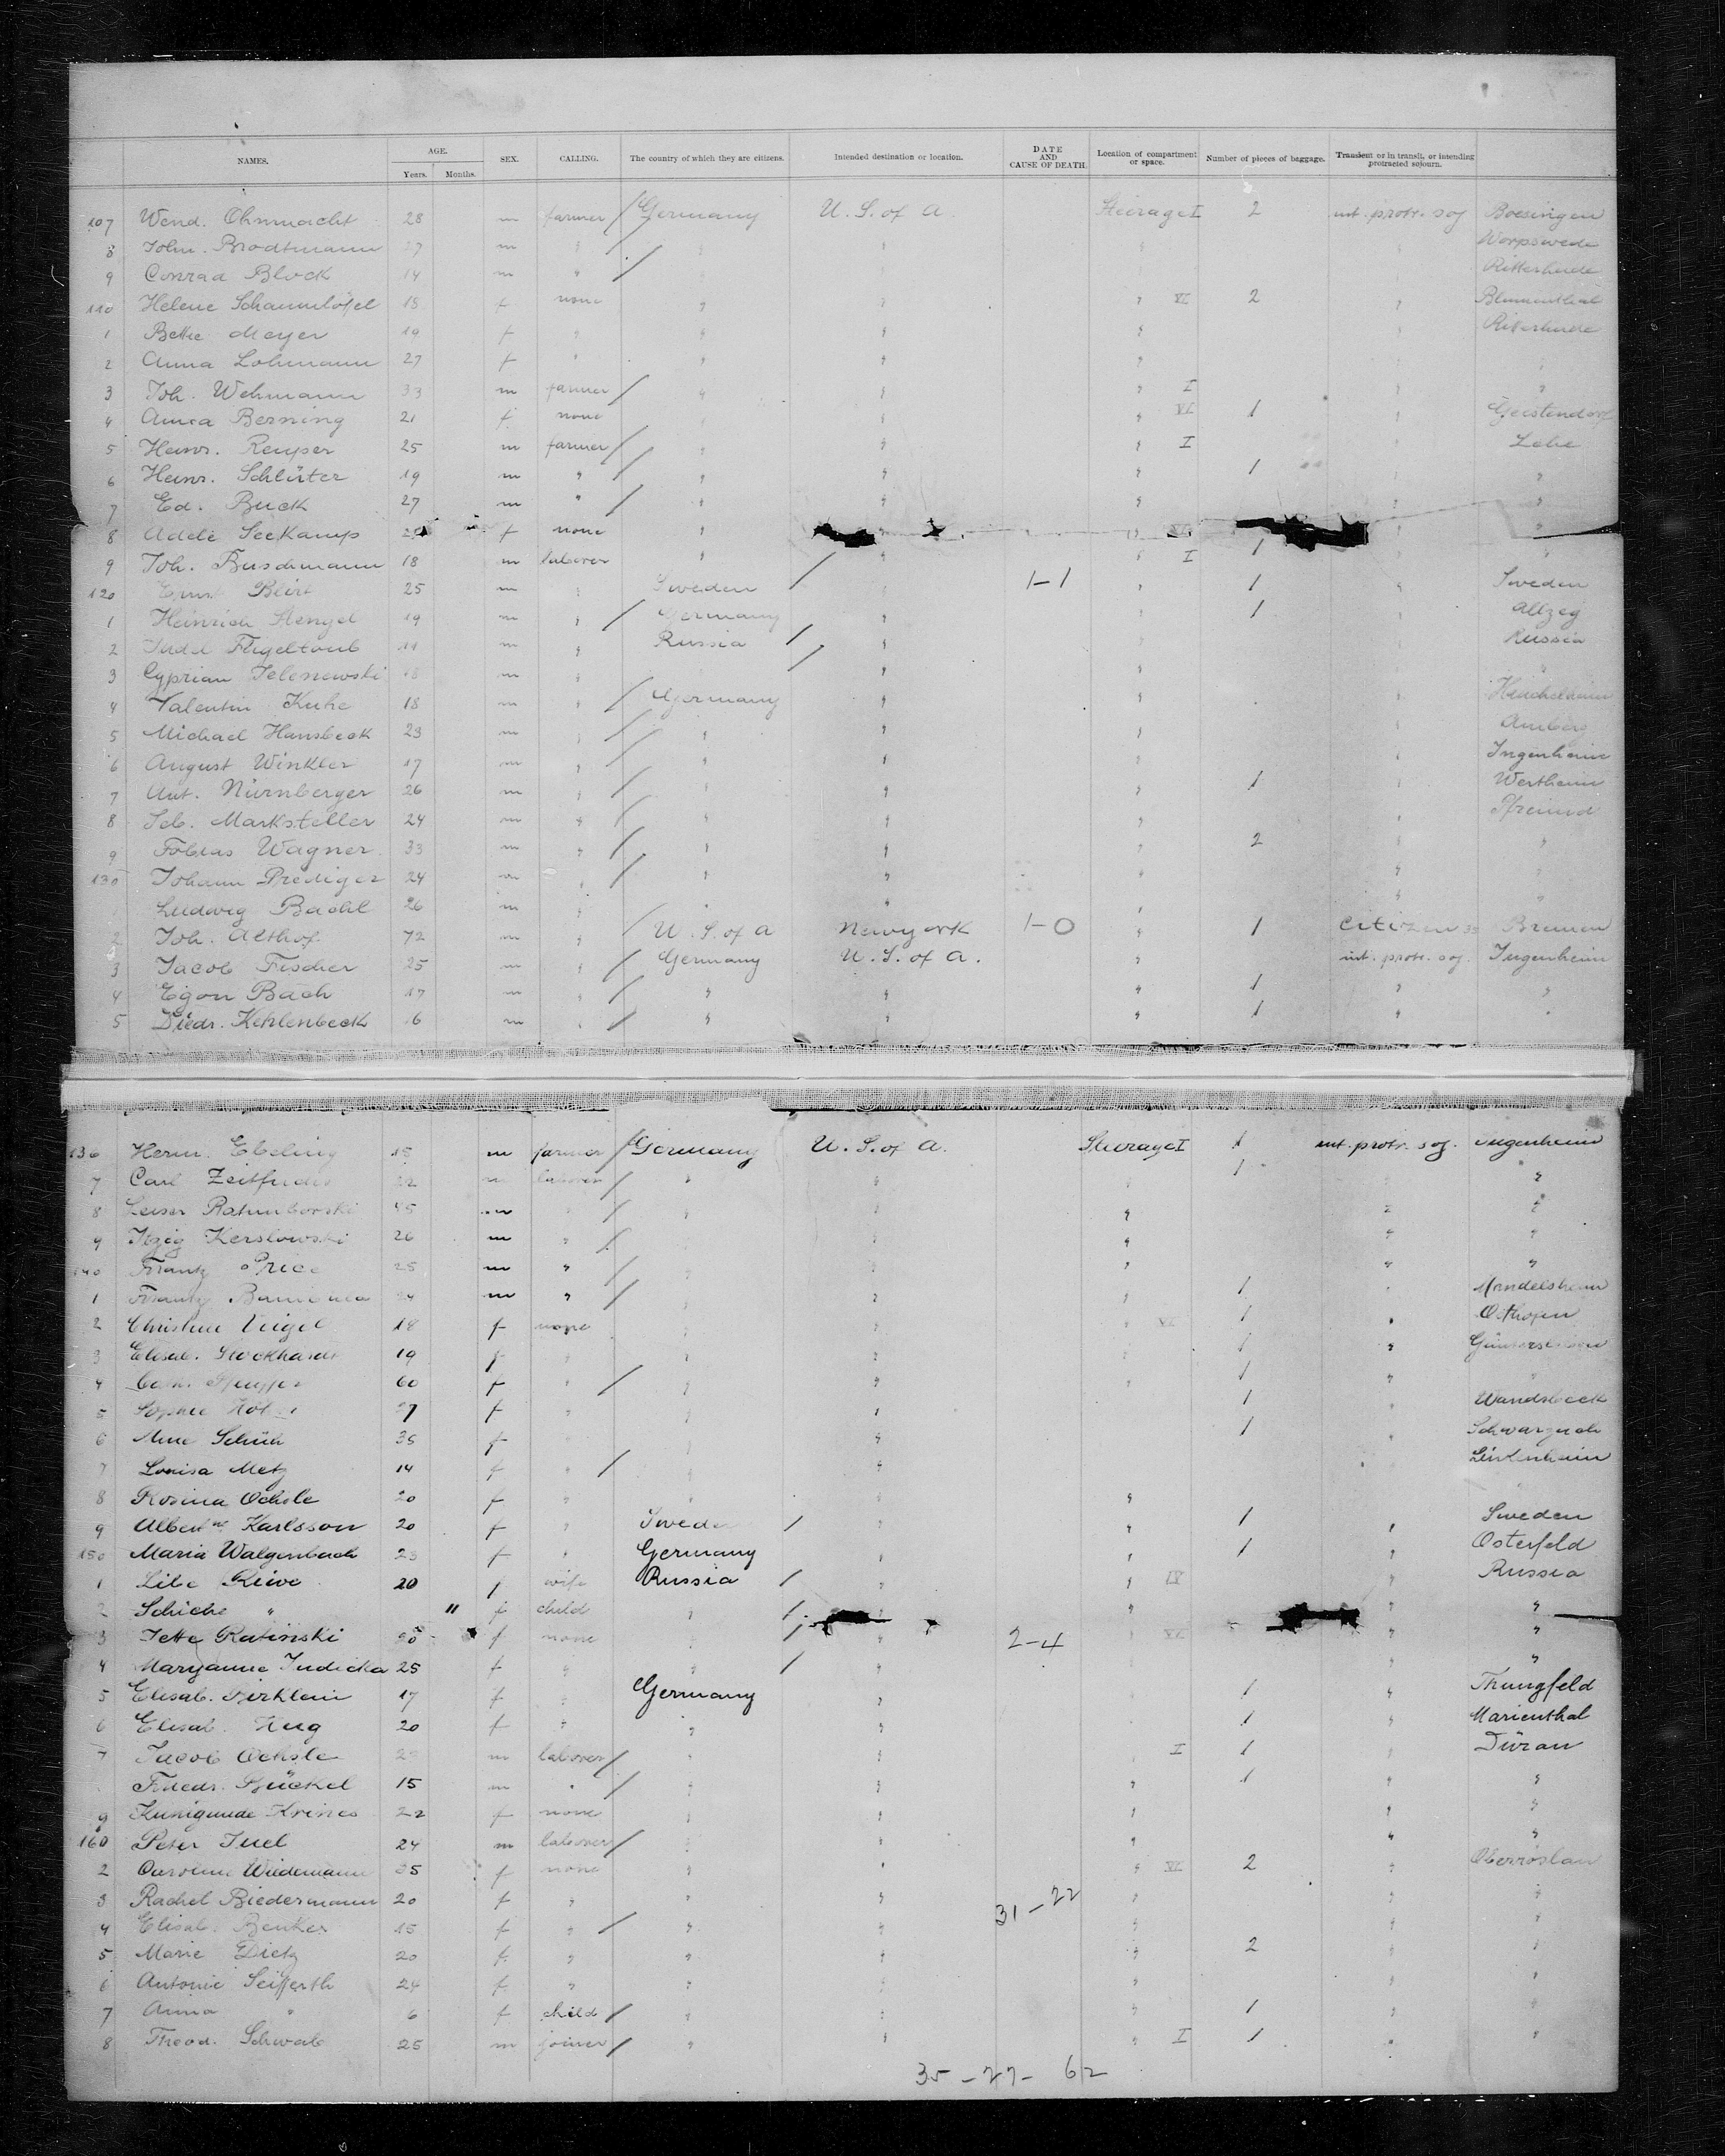 NAMES. AGE. Years. Months. SEX. CALLING. The country of which they are citizens. Intended destination or location. DATE AND CAUSE OF DEATH. Location of compartment or space. Number of pieces of baggage. Transient or in transit, or intending protracted sojourn.
107 Wend. Ohnmacht 28 m farmer / Germany U. S. of A. Steerage I 2 int. protr. soj Boesingen
8 John. Brodtmann 27 m " / " " " " Worpswede
9 Conrad Block 14 m " / " Ritterhude
110 Helene Schaumlöffel 18 f none " " " VI 2 " Blumenthal
1 Bettie Meyer 19 f " " " " " Ritterhude
2 Anna Lohmann 27 f " " " " "
3 Joh. Wehmann 33 m farmer / " " " I " "
4 Anna Berning 21 f none " " " VI 1 " Geestendorf
5 Heinr. Renper 25 m farmer / " " " I Lehe
6 Heinr. Schlüter 19 m " / " " " 1 " "
7 Ed. Buck 27 m " / " " " " "
8 Adele Seekamp f none " " " VI " "
9 Joh. Buschmann 18 m laborer " / " " I 1 "
120 Ernst Blirt 25 m " Sweden " 1-1 " 1 " Sweden
1 Heinrich Stengel 19 m " / Germany " " 1 " Allzeg
2 Judel Flügeltoub 11 m " Russia / " " " Russia
3 Cyprian Selenewski 18 m " / " " " "
4 Valentin Kuhe 18 m " / Germany " " " Heuchelheim
5 Michael Hansbeck 23 m " / " " " " Amberg
6 August Winkler 17 m " / " " " " Ingenheim
7 Ant. Nürnberger 26 m " / " " " 1 " Wertheim
8 Seb. Marksteller 24 m " " " " " Pfreimd
9 Tobias Wagner 33 m " / " " " 2 " "
130 Johann Prediger 24 m " / " " " " "
Ludwig Bachl 26 m " " " " "
2 Joh. Althof 72 m " U. S. of A Newyork 1-0 " 1 citizen Bremen
3 Jacob Fischer 25 m " / Germany U. S. of A. " int. protr. soj. Ingenheim
4 Egon Bach 17 m " / " " " 1 " "
5 Diedr. Kehlenbeck 16 m " / " " " 1 " "
136 Herm. Ebeling 15 m farmer / Germany U. S. of A. Steerage I 1 int. protr. soj. Ingenheim
7 Carl Zeitfuchs 22 m laborer / " " " 1 "
8 Leiser Ratunborski 45 m " / " " " " "
9 Itzig Kerslowski 26 m " / " " " "
140 Frantz Price 25 m " / " " " " "
1 Frantz 24 m " / " " " 1 " Mendelsheim
2 Christine Veigel 18 f none " " " VI 1 " Osthofen
3 Elisab. Stockhardt 19 f " " " " 1 "
4 60 f " / " " " 1 " "
5 Sophie 27 f " " " 1 " Wandsbeck
6 Anne Schüh 35 f " " " 1 "
7 Louisa Metz 14 f " / " " " Linkenheim
8 Rosina Ochsle 20 f " " " "
9 Karlsson 20 f " Sweden / " " 1 " Sweden
150 Maria Walgenbach 23 f " Germany " " 1 " Osterfeld
1 Libe Riwe 20 f wife Russia / " " IV " Russia
2 Schiche " 11 f child " / " " " "
3 Jette Ratinski 20 f none " / " 2-4 " VI " "
4 Maryanne Judicka 25 f " " / " " "
5 Elisab. Firklein 17 f " Germany " " 1 " Thüngfeld
6 Elisab. Hug 20 f " " " 1 " Marienthal
7 Jacob Ochsle m laborer / " " " I 1 " Düran
Friedr. Gückel 15 m " / " " " 1 " "
9 Kunigunde Krines 22 f none " " " " "
160 Peter Juel 24 m laborer / " " " " "
2 Caroline Wiedemann 25 f none " " " VI 2 " Oberröslau
3 Rachel Biedermann 20 f " " " 31-22 " " "
4 Elisab. Benker 15 f " / " " " " "
5 Marie Dietz 20 f " " " " 2 " "
6 Antonie Seifferth 24 f " " " " " "
7 Anna " 6 f child / " " " 1 " "
8 Theod. Schwab 25 m joiner / " " " I 1 " "
35-27- 62